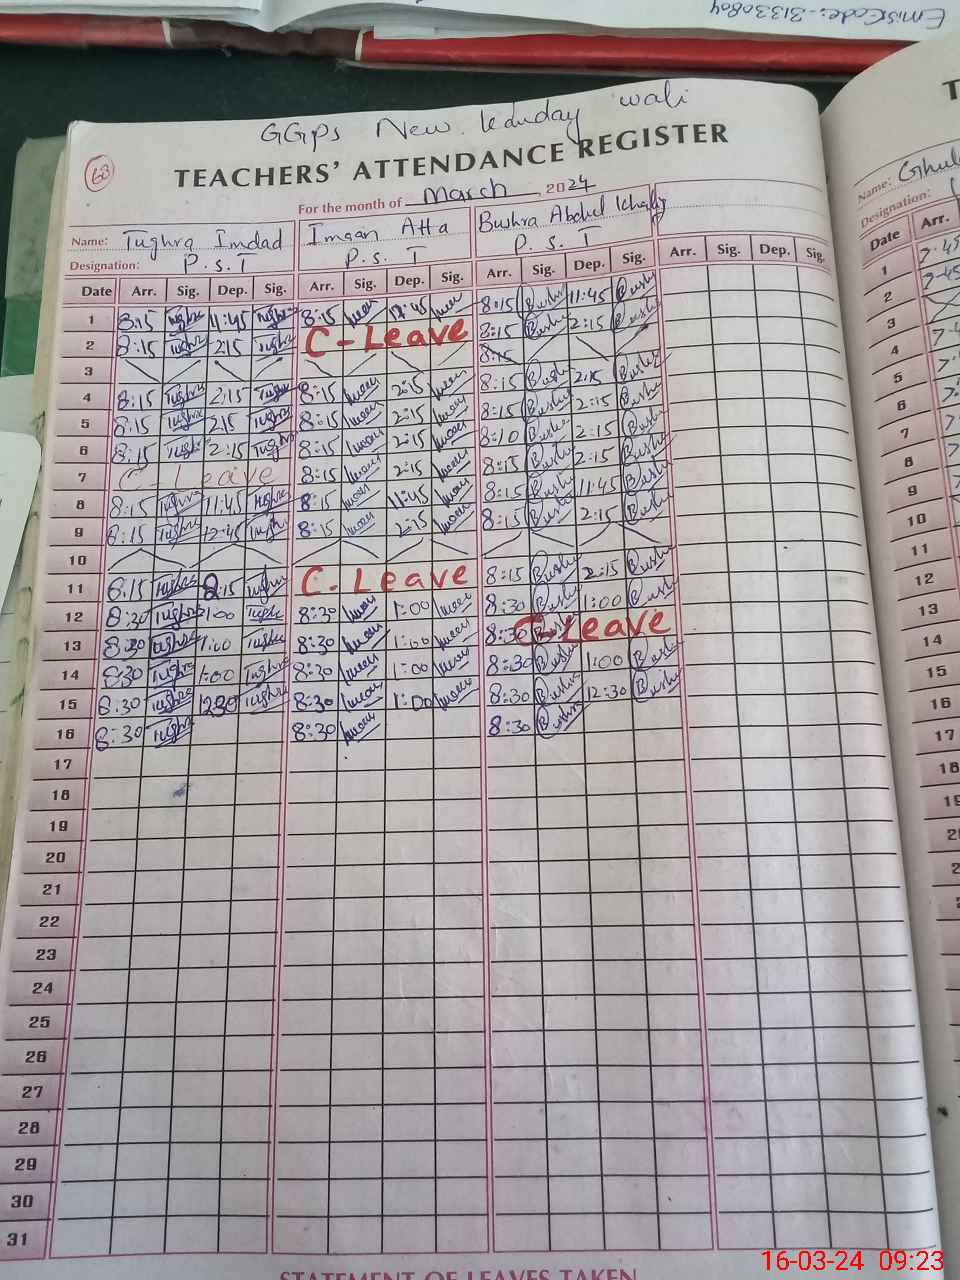 EmisCode:-31330804
GGPS New
wali
68
TEACHERS' ATTENDANCE REGISTER
For the month of March 2024
Name: Tughra Imdad Imaan Atta Bushra Abdul
Designation: P.S.T P.S.T P.S.T
Date Arr. Sig. Dep. Sig. Arr. Sig. Dep. Sig. Arr. Sig. Dep. Sig. Arr. Sig. Dep. Sig.
1 8:15 Tughra 11:45 Tughra 8:15 8:15 Bushra 11:45 Bushra
2 8:15 Tughra 2:15 Tughra C-Leave 8:15 Bushra 2:15 Bushra
3 8:15
4 8:15 Tughra 2:15 Tughra 8:15 Imaan 2:15 Imaan 8:15 Bushra 2:15 Bushra
5 8:15 Tughra 2:15 Tughra 8:15 Imaan 2:15 Imaan 8:15 Bushra 2:15 Bushra
6 8:15 Tughra 2:15 Tughra 8:15 Imaan 2:15 Imaan 8:10 Bushra 2:15 Bushra
7 C-Leave 8:15 Imaan 2:15 Imaan 8:15 Bushra 2:15 Bushra
8 8:15 Tughra 11:45 Tughra 8:15 Imaan 11:45 Imaan 8:15 Bushra 11:45 Bushra
9 8:15 Tughra 12:45 Tughra 8:15 Imaan 2:15 Imaan 8:15 Bushra 2:15 Bushra
10
11 8:15 Tughra 2:15 Tughra C-Leave 8:15 Bushra 2:15 Bushra
12 8:30 Tughra 1:00 Tughra 8:30 Imaan 1:00 Imaan 8:30 Bushra 1:00 Bushra
13 8:30 Tughra 1:00 Tughra 8:30 Imaan 1:00 Imaan 8:30 C-Leave
14 8:30 Tughra 1:00 Tughra 8:30 Imaan 1:00 Imaan 8:30 Bushra 1:00 Bushra
15 8:30 Tughra 12:30 Tughra 8:30 Imaan 1:00 Imaan 8:30 Bushra 12:30 Bushra
16 8:30 Tughra 8:30 Imaan 8:30 Bushra
17
18
19
20
21
22
23
24
25
26
27
28
29
30
31
STATEMENT OF LEAVES TAKEN
Name:
Designation:
Date Arr.
1 7:45
2 7:45
3
4
5
6
7
8
9
10
11
12
13
14
15
16
17
18
16-03-24 09:23